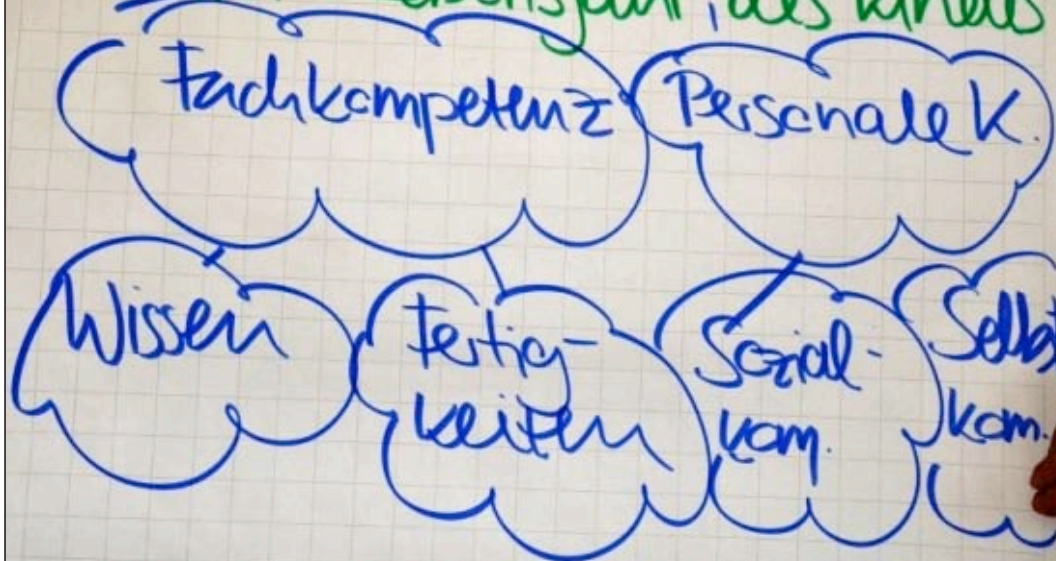 des Kindes
Fachkompetenz
Personale K.
Wissen
Fertig-
keiten
Sozial-
kom.
Selbst
kom.